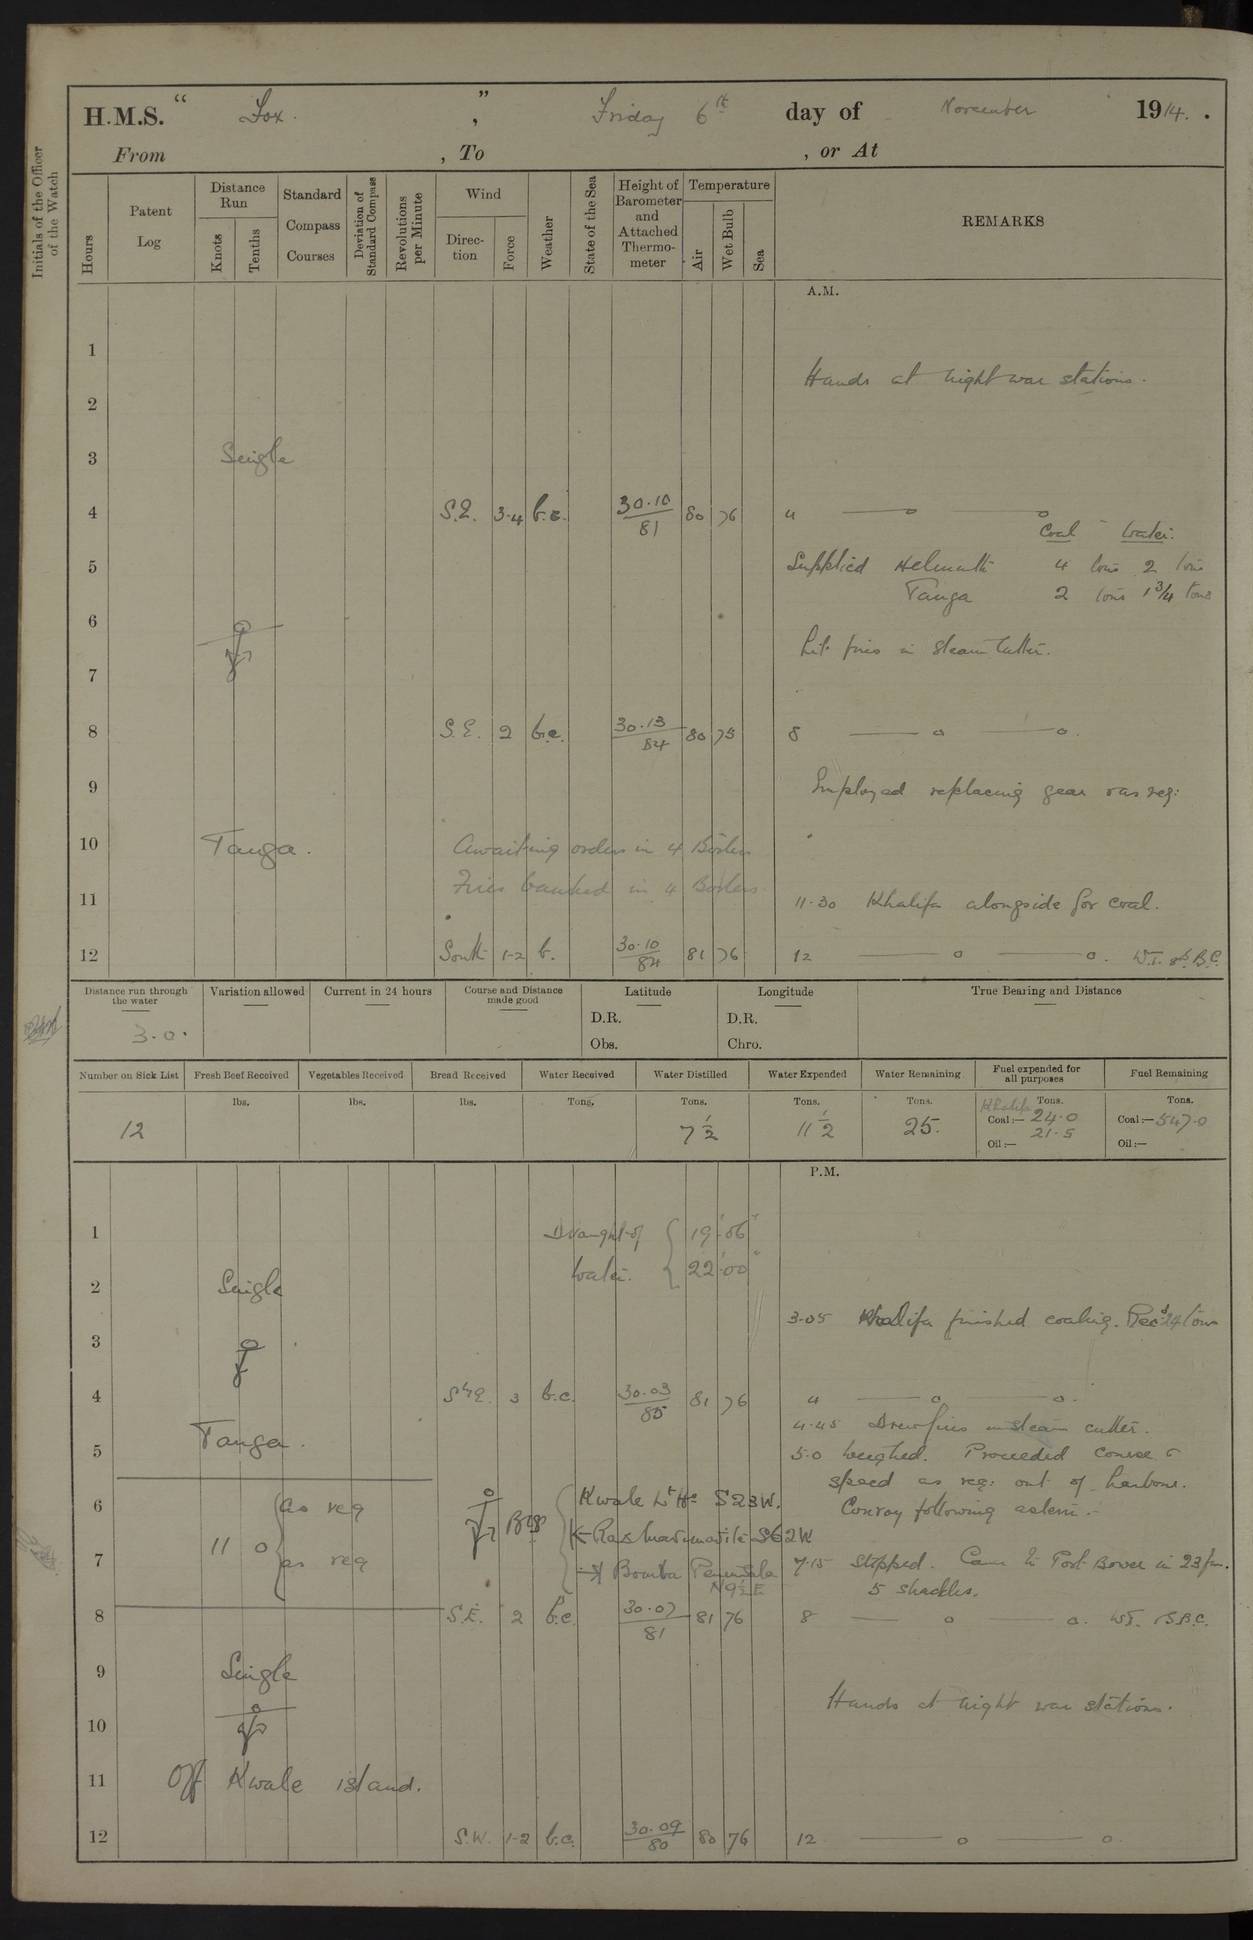 H.M.S. " Fox. " , Friday 6th day of November 1914.
From , To , or At
Initials of the Officer of the Watch
Hours
Patent Log
Distance Run
Knots
Tenths
Standard Compass Courses
Deviation of Standard Compass
Revolutions per Minute
Wind
Direction
Force
Weather
State of the Sea
Height of Barometer and Attached Thermometer
Temperature
Air
Wet Bulb
Sea
REMARKS
A.M.
1
Hands at night war stations.
2
3 Single
4 S.E. 3-4 b.c. 30.10/81 80 76 4 —o —o
Coal Water.
5 Supplied Helmuth 4 tons 2 tons
Tanga 2 tons 1 3/4 tons
6
Lit fires in steam cutter.
7
8 S.E. 2 b.c. 30.13/84 80 75 8 —o —o.
9 Employed replacing gear & as req:
10 Tanga. Awaiting orders in 4 Boilers
Fires banked in 4 Boilers
11 11.30 Khalifa alongside for coal.
12 South 1-2 b. 30.10/84 81 76 12 —o —o. W.T. & S.B.C.
Distance run through the water
Variation allowed
Current in 24 hours
Course and Distance made good
Latitude
Longitude
True Bearing and Distance
D.R. D.R.
3.0.
Obs. Chro.
Number on Sick List
Fresh Beef Received
Vegetables Received
Bread Received
Water Received
Water Distilled
Water Expended
Water Remaining
Fuel expended for all purposes
Fuel Remaining
lbs. lbs. lbs. Tons. Tons. Tons. Tons. Tons. Tons.
12 7 1/2 11 1/2 25. Khalifa Coal:— 24.0 Coal:— 547.0
21.5
Oil:— Oil:—
P.M.
1 Draught of { 19' 06"
water. { 22' 00"
2 Single
3.05 Khalifa finished coaling. Recd 24 tons
3
4 S'ly E. 3 b.c. 30.03/85 81 76 4 —o —o.
4.45 Drew fires in steam cutter.
Tanga.
5 5.0 Weighed. Proceeded course &
speed as req: out of harbour.
6 as req Kwale Lt Ho S23W. Convoy following astern.
11 0 Brgs S62W
7 as req Bomba Peninsula 7.15 Stopped. Came to Port Bower in 23 fm.
N9½E 5 shackles.
8 S.E. 2 b.c. 30.07/81 81 76 8 —o —o. W.T. & S.B.C.
9 Single
Hands at night war stations.
10
11 Off Kwale island.
12 S.W. 1-2 b.c. 30.09/80 80 76 12 —o —o.